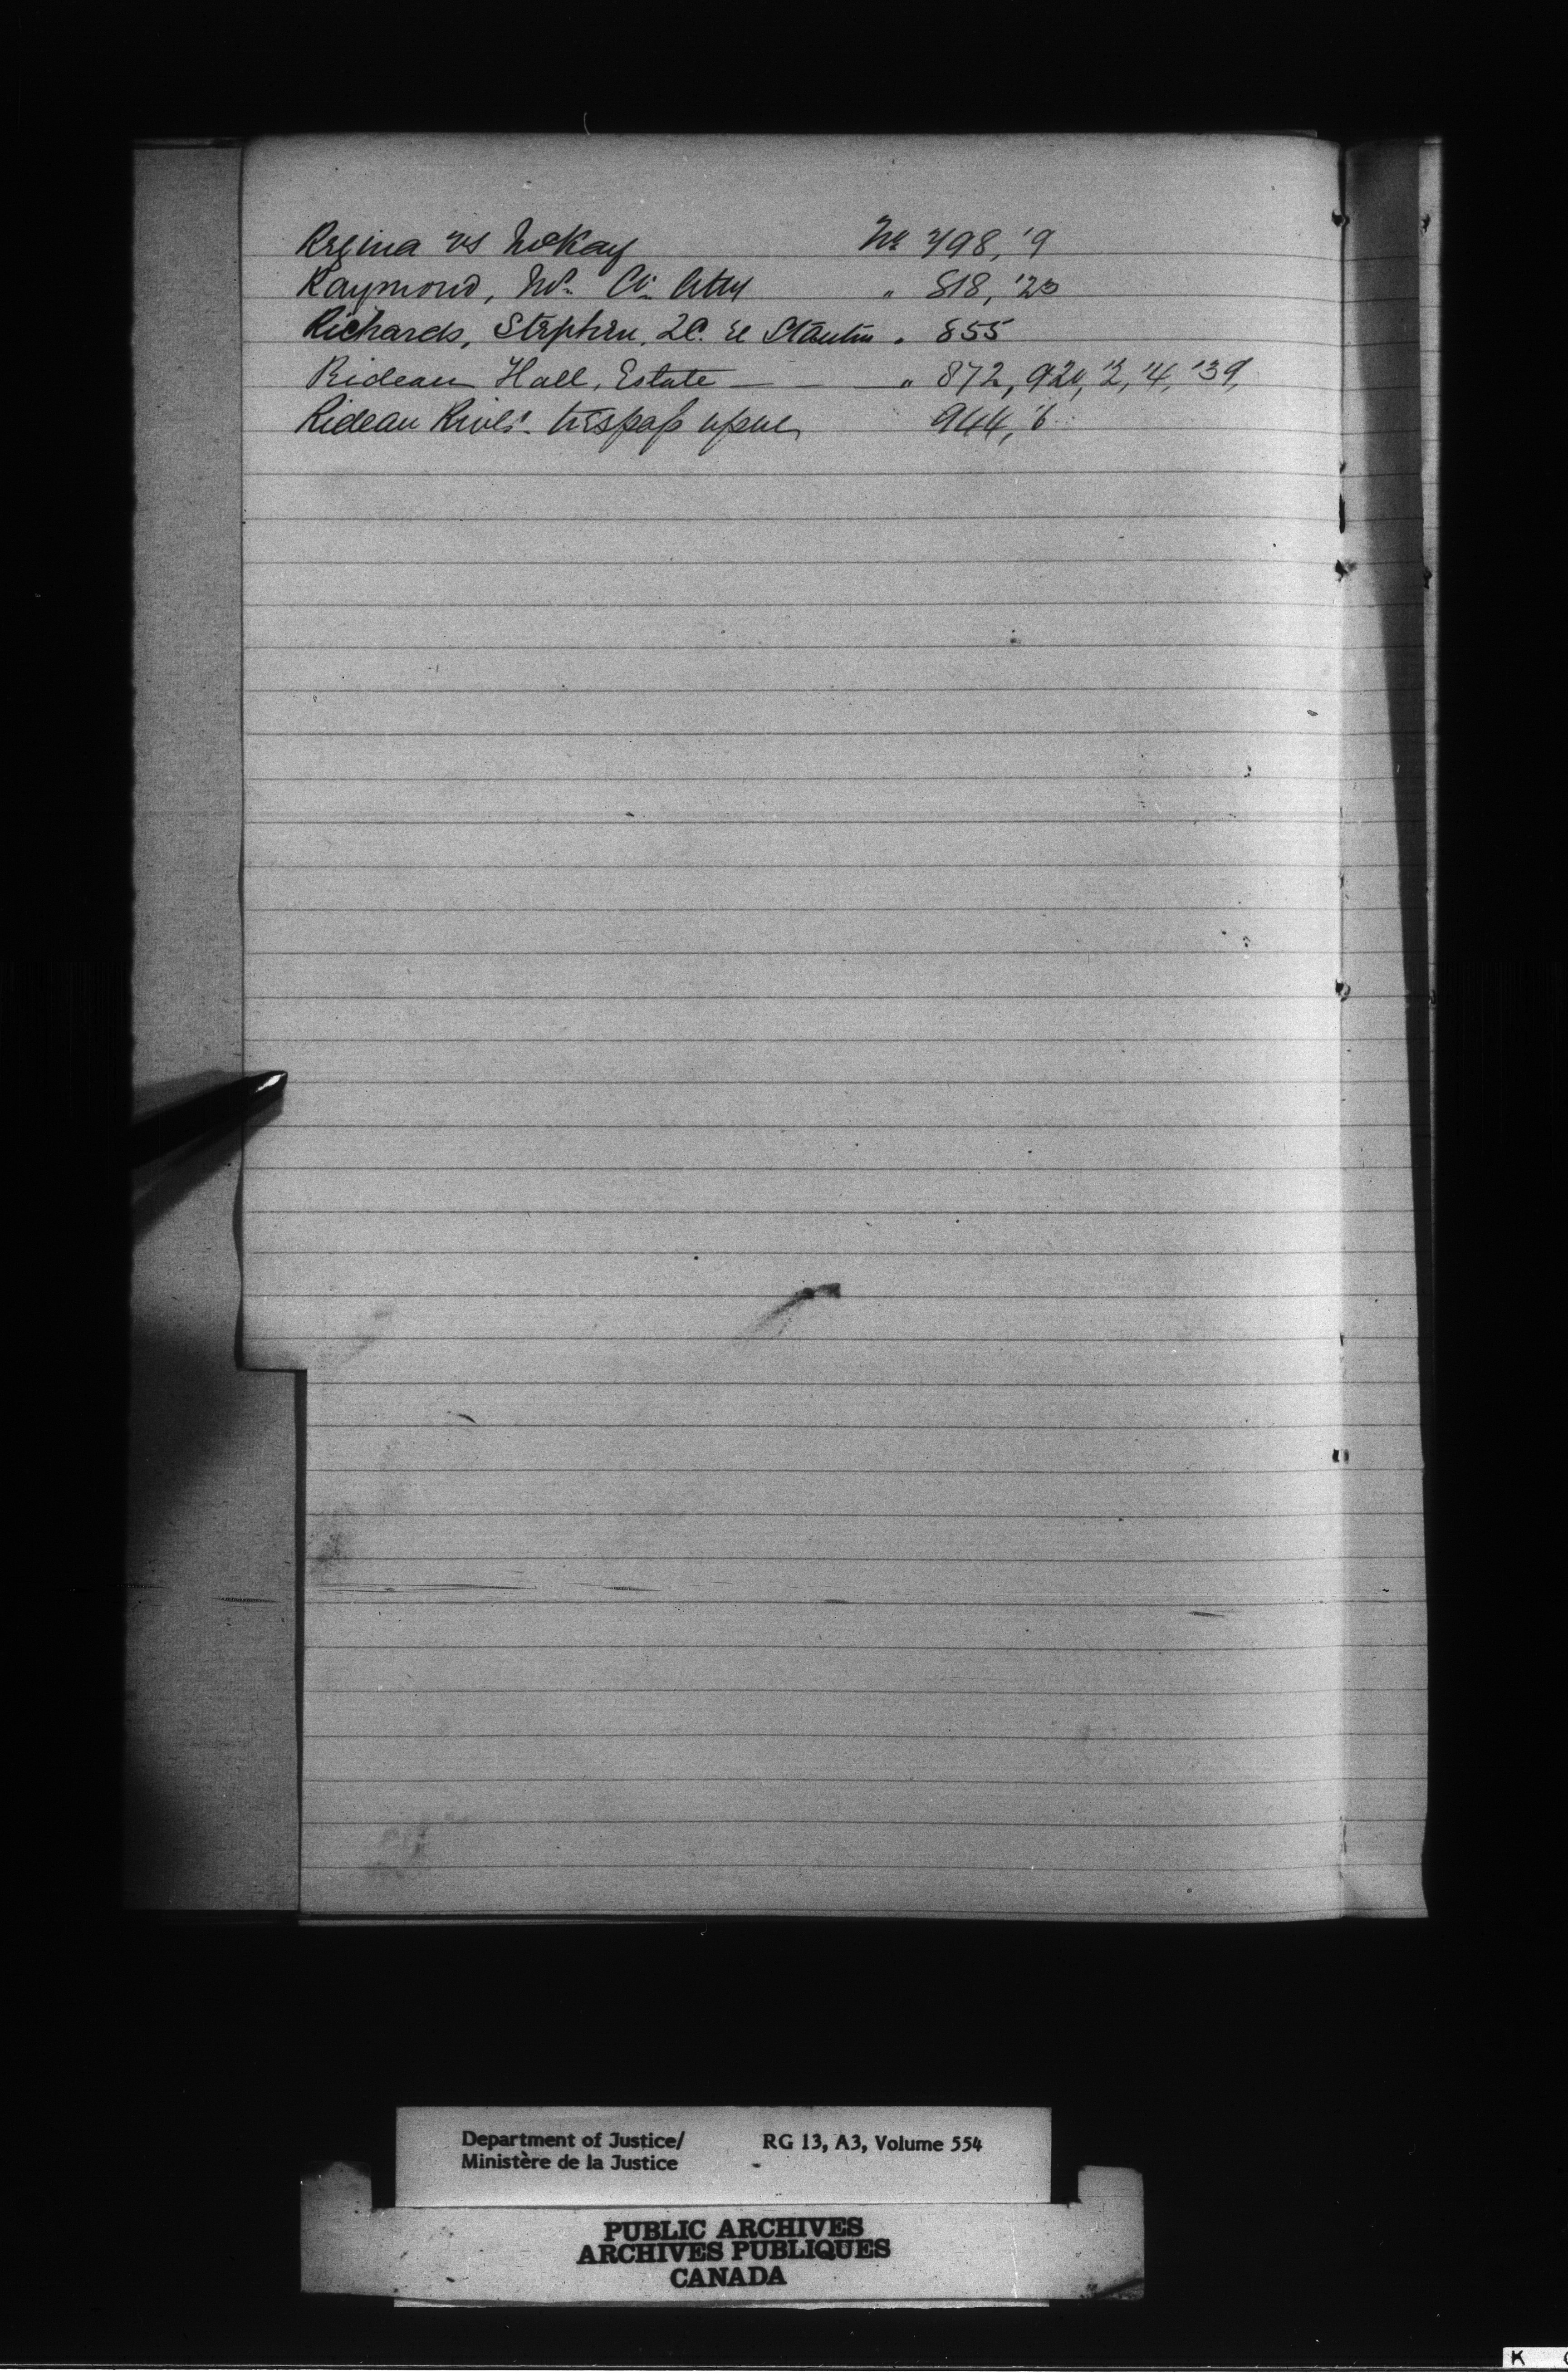 Regina vs McKay No 798, '9
Raymond, Wm. Co. Atty " 818, '20
Richards, Stephen, QC. re " 855
Rideau Hall, Estate — — " 872, 920, '2, '4, '39,
Rideau River. trespass upon 944, '6
Department of Justice/ RG 13, A3, Volume 554
Ministère de la Justice
PUBLIC ARCHIVES
ARCHIVES PUBLIQUES
CANADA
K